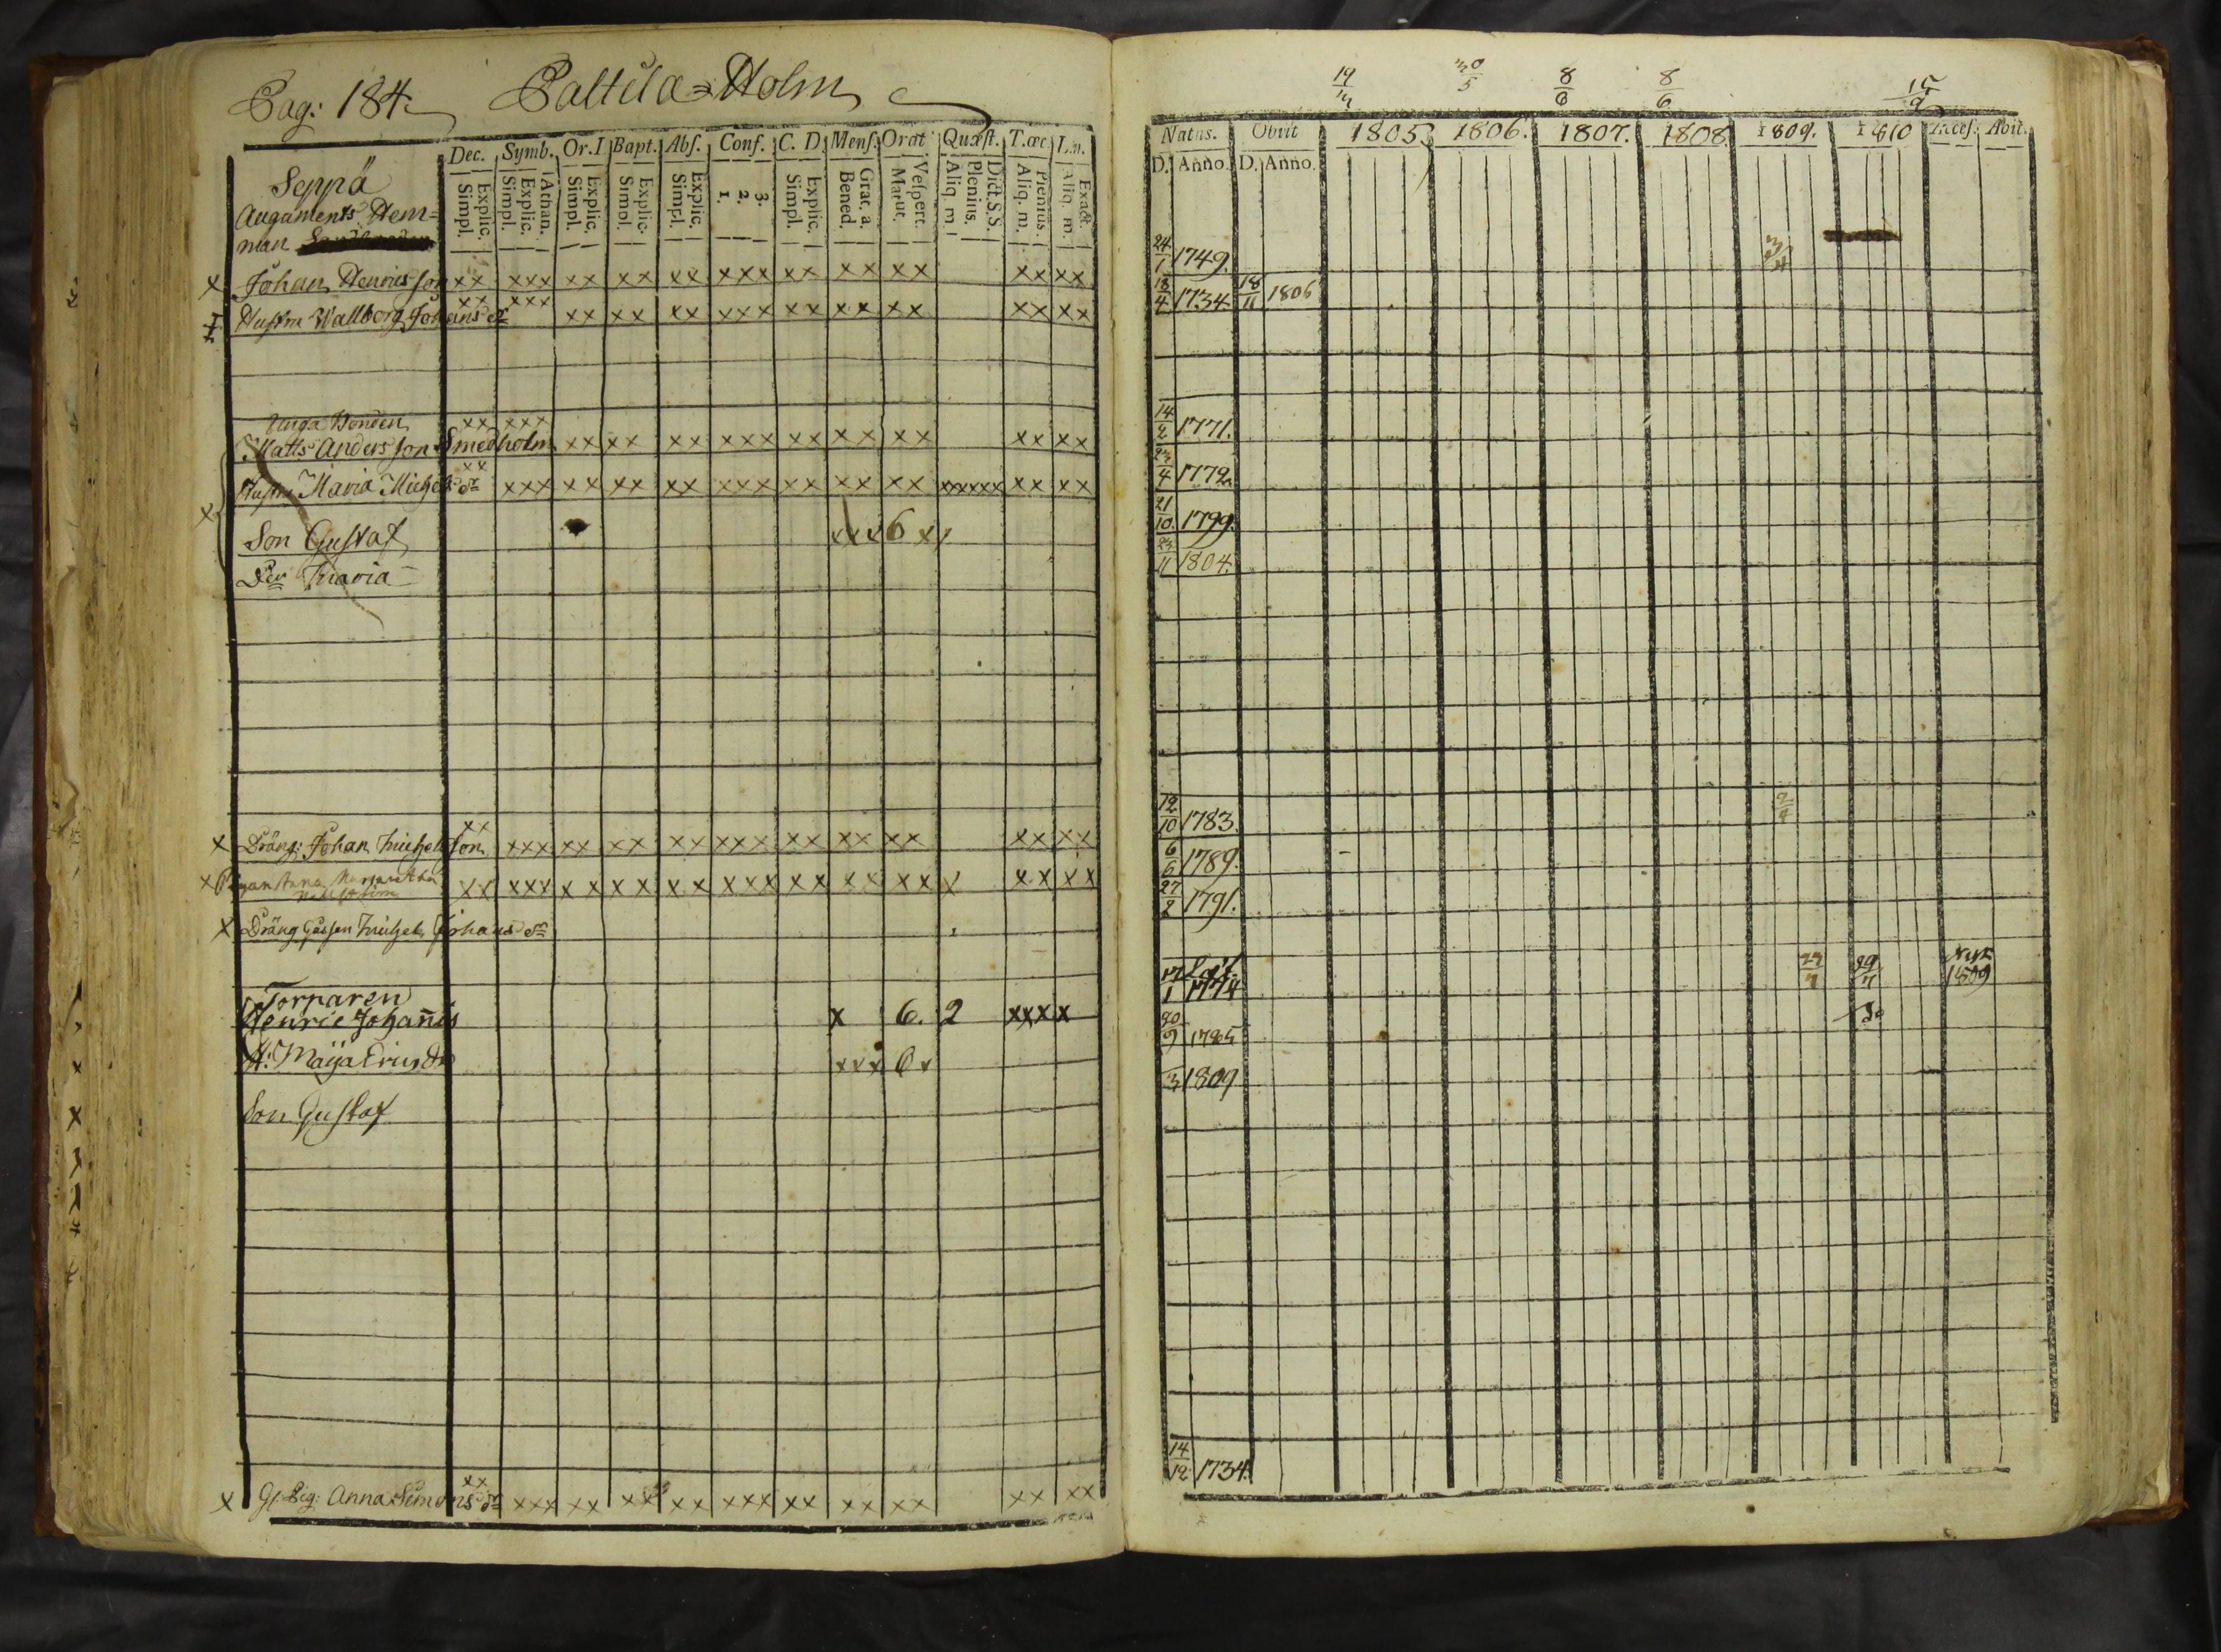 Pag: 184. Paltila=Holm
Dec. Symb. Or.I Bapt. Abſ. Conf. C. D. Menſ. Orat Quæſt. T.œc.
Explic. Simpl. Athan. Explic. Simpl. Explic. Simpl. Explic. Simpl. Explic. Simpl. 3. 2. 1. Explic. Simpl. Grat. a. Bened. Veſpert. Matut. Dict.S.S. Plenius. Aliq. m. Plenius. Aliq. m. Exact. Aliq. m.
Seppä
Augaments Hem=
man
x Johan Henricsson xx xxx xx xx xx xxx xx xx xx xx xx
Hustru Wallborg Johans dr xx xxx xx xx xx xxx xx xx xx xx xx
Unga Bonden xx xxx
Matts Andersson Smedholm xx xx xx xxx xx xx xx xx xx
Hustru Maria Michels dr xx xxx xx xx xx xxx xx xx xx xxxxxx xx xx
x Son Gustaf xxx 6 x
Dr Maria
x Dräng: Johan Michelsson xx xxx xx xx xx xxx xx xx xx xx xx
x Pigan Anna Margaretha xx xxx xx xx xx xxx xx xx xx x xx xx
x Dräng Gåssen Michel Johans sn
Torparen
Henric Johañis x 6. 2 xxxx
H: Maija Erics dr xxx 6 x
Son Gustaf
x Anna Simons dr xx xxx xx xx xx xxx xx xx xx xx xx
19 30/5 8/6 8/6 15/9
Natus. Obiit 1805. 1806. 1807. 1808. 1809. 1810 Acceſ. Abit.
D. Anno. D. Anno.
24/1 1749.
18/4 1734. 18/11 1806
14/2 1771.
23/4 1772.
21/10. 1799.
23/11 1804.
12/10 1783.
6/6 1789.
27/2 1791.
17/1 1774 1809
30/9 1785
3 1809
14/12 1734.